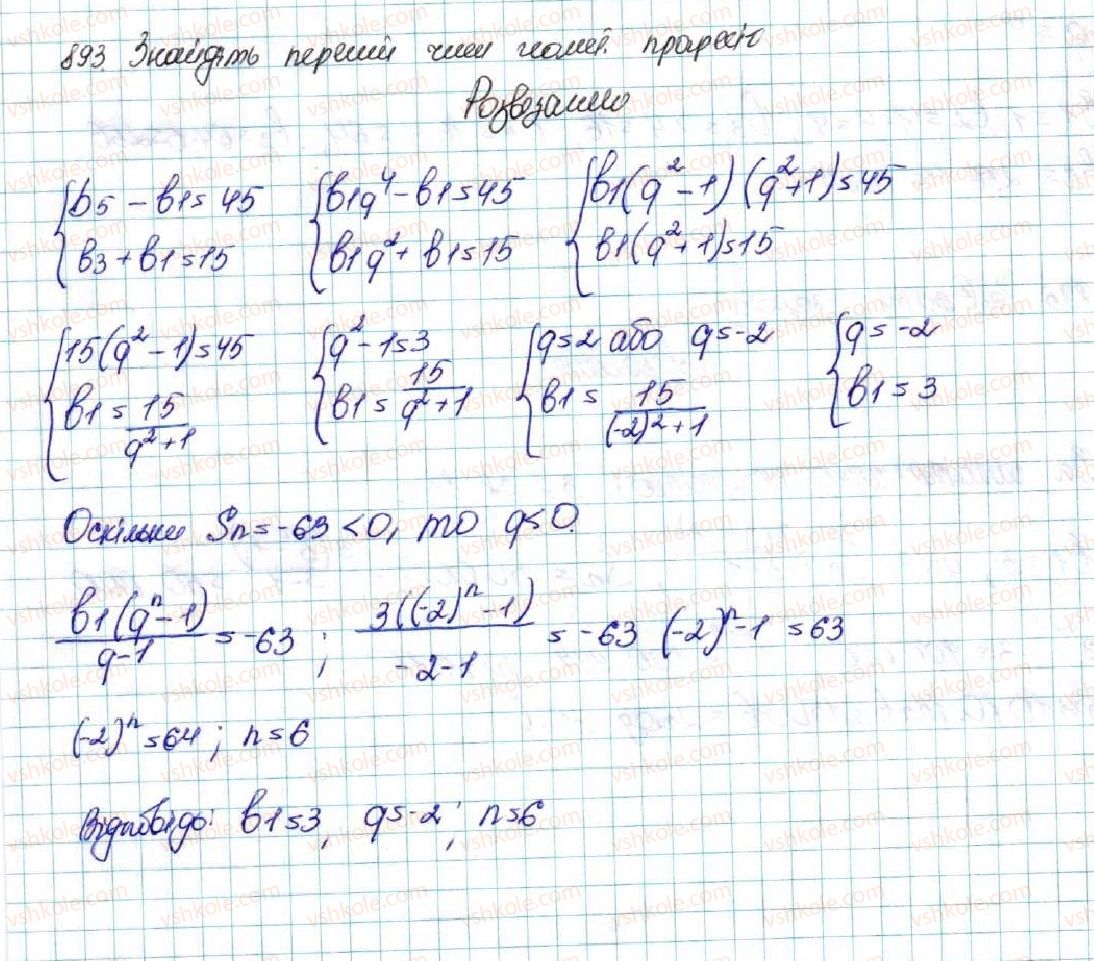 893. Знайдіть перший член геомет. прогресію
Розвезанно
{b5 - b1 = 45 {b1q⁴ - b1 = 45 {b1(q² - 1)(q² + 1) = 45
b3 + b1 = 15 b1q² + b1 = 15 b1(q² + 1) = 15
{15(q² - 1) = 45 {q² - 1 = 3 {q = 2 або q = -2 {q = -2
b1 = 15/(q² + 1) b1 = 15/(q² + 1) b1 = 15/((-2)² + 1) b1 = 3
Оскільки Sn = -63 < 0, то q < 0.
b1(qⁿ - 1)/(q - 1) = -63 ; 3((-2)ⁿ - 1)/(-2 - 1) = -63 (-2)ⁿ - 1 = 63
(-2)ⁿ = 64 ; n = 6
Відповідь: b1 = 3, q = -2 ; n = 6